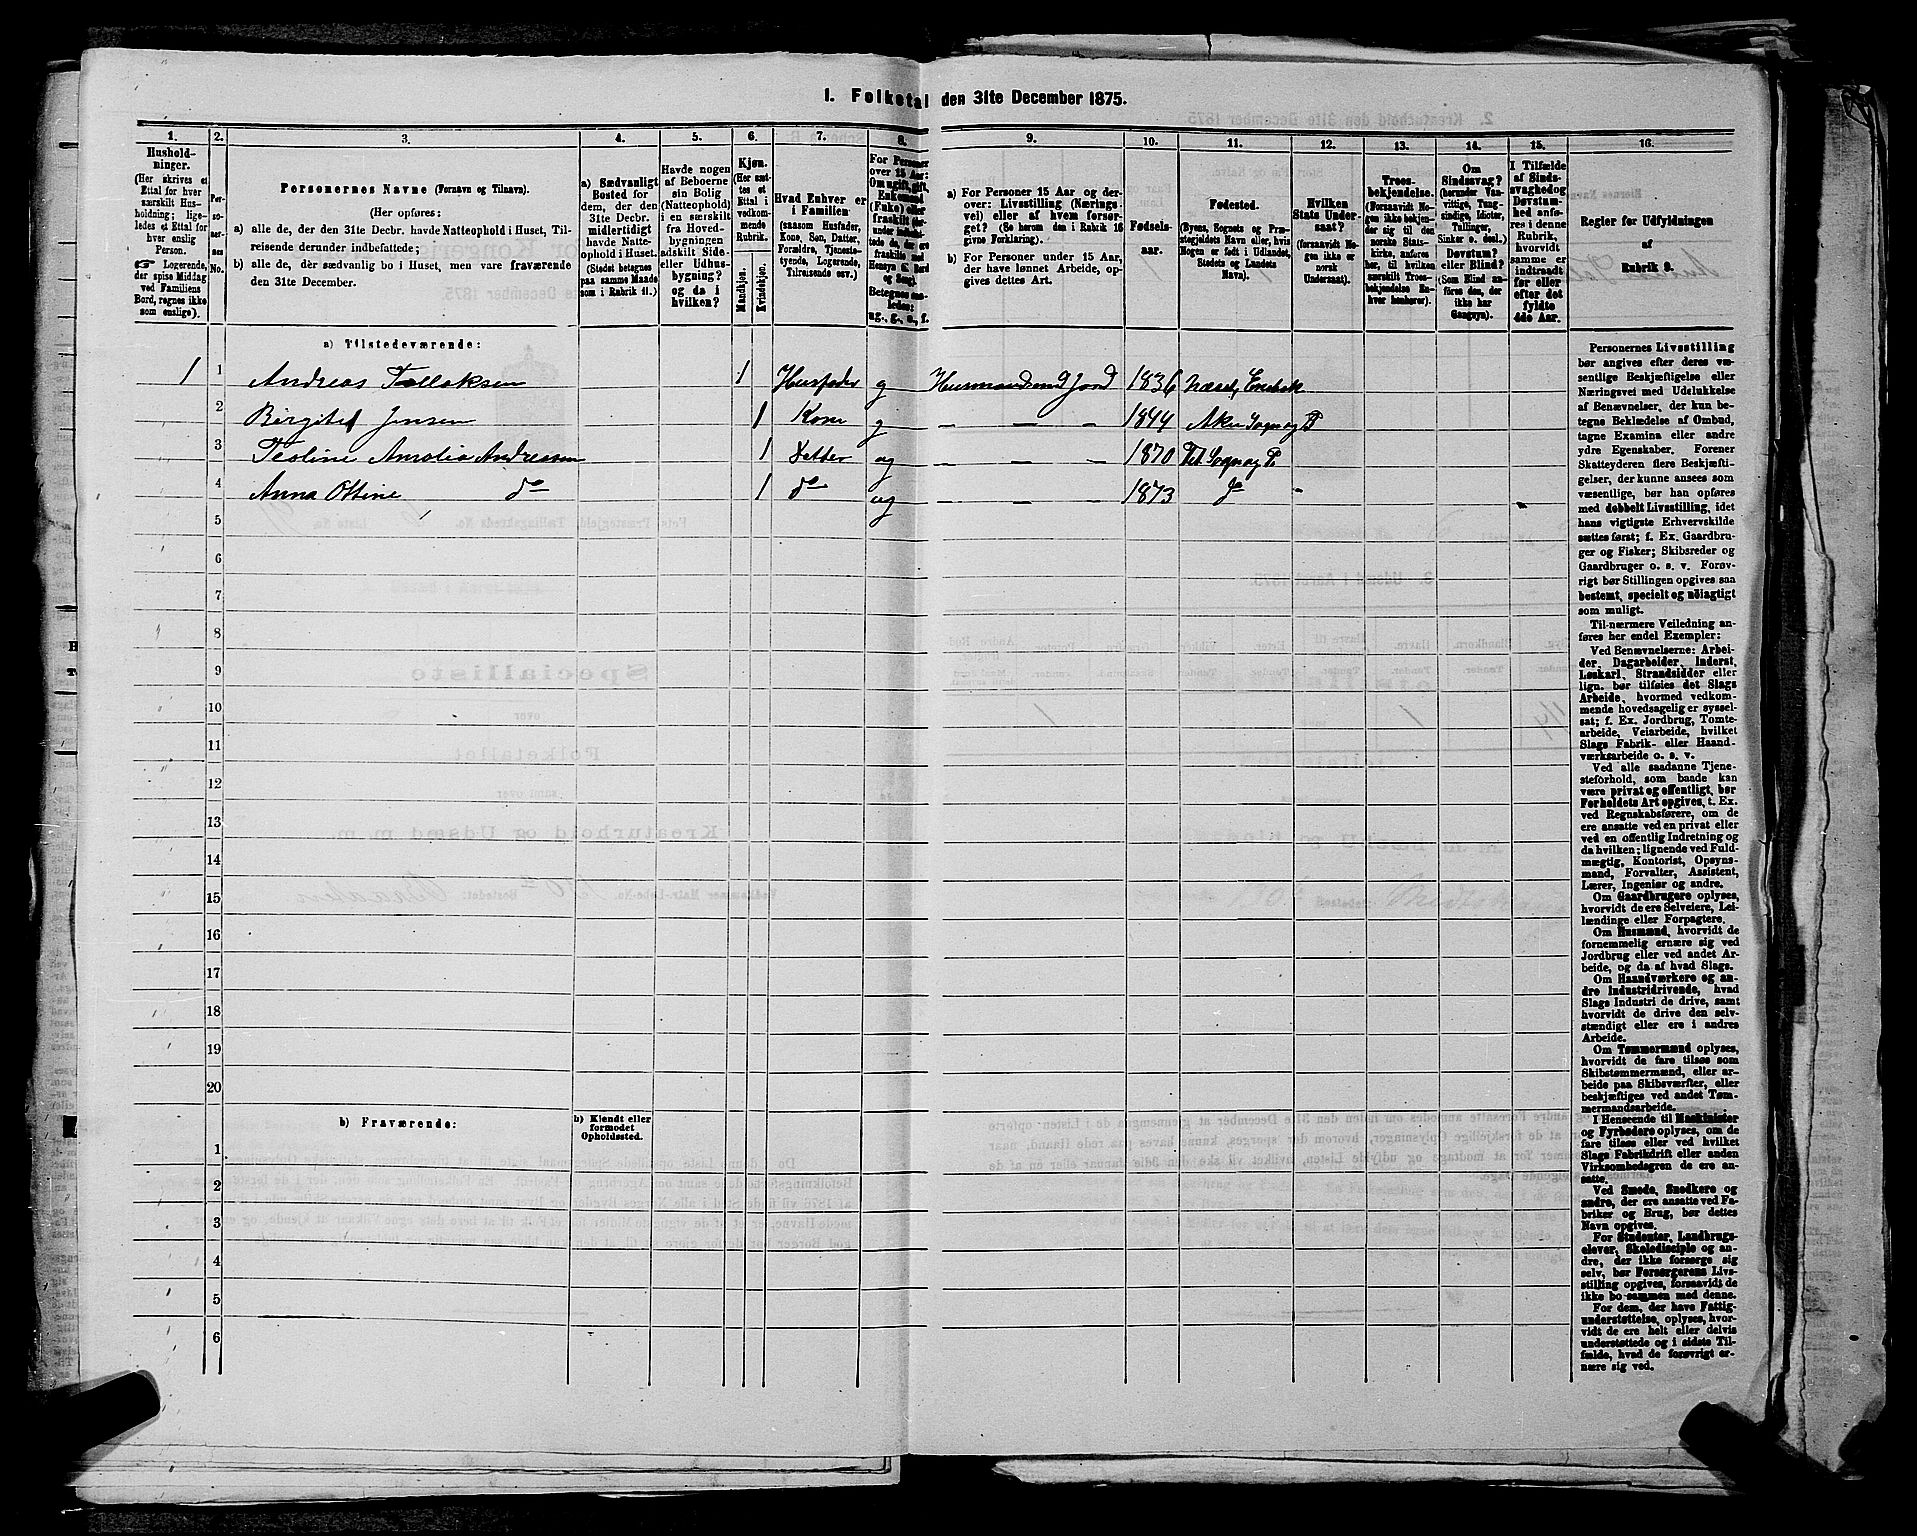 1. Folketal den 31te December 1875.
1. 2. 3. 4. 5. 6. 7. 8. 9. 10. 11. 12. 13. 14. 15. 16.
Hushold-
ninger.
(Her skrives et
Ettal for hver
særskilt Hus-
holdning; lige-
ledes et Ettal for
hver enslig
Person.
Logerende,
der spise Middag
ved Familiens
Bord, regnes ikke
som enslige).
Personernes No.
Personernes Navne (Fornavn og Tilnavn).
(Her opføres:
a) alle de, der den 31te Decbr. havde Natteophold i Huset, Til-
reisende derunder indbefattede;
b) alle de, der sædvanlig bo i Huset, men vare fraværende
den 31te December.
a) Sædvanligt
Bosted for
dem, der den
31te Decbr.
midlertidigt
havde Natte-
ophold i Huset.
(Stedet betegnes
paa samme Maade
som i Rubrik 11.)
Havde nogen
af Beboerne
sin Bolig
(Natteophold)
i en særskilt
fra Hoved-
bygningen
adskilt Side-
eller Udhus-
bygning?
og da i
hvilken?
Kjøn.
(Her sæt-
tes et
Ettal i
vedkom-
mende
Rubrik.
Mandkjøn.
Kvindekjøn.
Hvad Enhver er
i Familien
(saasom Husfader,
Kone, Søn, Datter,
Forældre, Tjeneste-
tyende, Logerende,
Tilreisende osv.)
For Personer
over 15 Aar:
Om ugift, gift,
Enkemand
(Enke) eller
fraskilt
Betegnes saa-
ledes:
ug., g., e., f.
a) For Personer 15 Aar og der-
over: Livsstilling (Nærings-
vei) eller af hvem forsør-
get? (Se herom den i Rubrik 16
givne Forklaring).
b) For Personer under 15 Aar,
der have lønnet Arbeide, op-
gives dettes Art.
Fødsels-
aar.
Fødested.
(Byens, Sognets og Præ-
stegjeldets Navn eller, hvis
Nogen er født i Udlandet,
Stedets og Landets
Navn).
Hvilken
Stats Under-
saat?
(forsaavidt No-
gen ikke er
norsk
Undersaat).
Troes-
bekjendelse.
(Forsaavidt No-
gen ikke bekjen-
der sig til den
norske Stats-
kirke, anføres
her, til hvilken
særskilt Troes-
bekjendelse En-
hver henhører).
Om
Sindssvag?
(herunder Van-
vittige, Tung-
sindige, Idioter,
Tullinger,
Sinker o. desl.).
Døvstum?
eller Blind?
(Som Blind an-
føres den, der
ikke har
Gangsyn).
I Tilfælde
af Sinds-
svaghed og
Døvstum-
hed anfø-
res i denne
Rubrik,
hvorvidt
samme er
indtraadt
før eller
efter det
fyldte
4de Aar.
Regler for Udfyldningen
af
Rubrik 9.
a) Tilstedeværende:
1 1 Andreas Tollaksen 1 Husfader g Husmandmed Jord 1836 Næset, Enebak
2 Birgitel Jensen 1 Kone g — — — 1844 Aker Sogn og P
3 Teoline Amalia Andreasen 1 Datter ug — — — 1870 Det Sogn og P.
4 Anna Ottine do 1 do ug — — — 1873 do
5
6
7
8
9
10
11
12
13
14
15
16
17
18
19
20
b) Fraværende:
b) Kjendt eller
formodet
Opholdssted.
1
2
3
4
5
6
Personernes Livsstilling
bør angives efter deres væ-
sentlige Beskjæftigelse eller
Næringsvei med Udelukkelse
af Benævnelser, der kun be-
tegne Beklædelse af Ombud,
tagne Examina eller andre
ydre Egenskaber. Forener
Skatteyderen flere Beskjæfti-
gelser, der kunne ansees som
væsentlige, bør han opføres
med dobbelt Livsstilling, idet
hans vigtigste Erhvervskilde
sættes først; f. Ex. Gaardbru-
ger og Fisker; Skibsreder og
Gaardbruger o. s. v. Forøv-
rigt bør Stillingen opgives saa
bestemt, specielt og nøiagtigt
som muligt.
Til nærmere Veiledning an-
føres her endel Exempler:
Ved Benævnelserne: Arbei-
der, Dagarbeider, Inderst,
Løskarl, Strandsidder eller
lign. bør tilføies det Slags
Arbeide, hvormed vedkom-
mende hovedsagelig er syssel-
sat; f. Ex. Jordbrug, Tomte-
arbeide, Veiarbeide, hvilket
Slags Fabrik- eller Haand-
værksarbeide o. s. v.
Ved alle saadanne Tjene-
steforhold, som baade kan
være privat og offentligt, bør
Forholdets Art opgives, t. Ex.
ved Regnskabsførere, om de
ere ansatte ved en privat eller
ved en offentlig Indretning og
da hvilken; lignende ved Fuld-
mægtig, Kontorist, Opsyns-
mand, Forvalter, Assistent,
Lærer, Ingeniør og andre.
Om Gaardbrugere oplyses,
hvorvidt de ere Selveiere, Lei-
lændinge eller Forpagtere.
Om Husmænd, hvorvidt de
fornemmelig ernære sig ved
Jordbrug eller ved andet Ar-
beide, og da af hvad Slags.
Om Haandværkere og an-
dre Industridrivende, hvad
Slags Industri de drive, samt
hvorvidt de drive den selv-
stændigt eller ere i andres
Arbeide.
Om Tømmermænd oplyses,
hvorvidt de fare tilsøs som
Skibstømmermænd, eller ar-
beide paa Skibsværfter, eller
beskjæftiges ved andet Tøm-
mermandsarbeide.
I Henseende til Maskinister
og Fyrbødere oplyses, om de
fare tilsøs eller ved hvilket
Slags Fabrikdrift eller anden
Virksomhedsgren de ere an-
satte.
Ved Smede, Snedkere og
andre, der ere ansatte ved Fa-
briker og Brug, bør dettes
Navn opgives.
For Studenter, Landbrugs-
elever, Skoledisciple og an-
dre, der ikke forsørge sig
selv, bør Forsørgerens Livs-
stilling opgives, forsaavidt de
ikke bo sammen med denne.
For dem, der have Fattig-
understøttelse, oplyses, hvor-
vidt de ere helt eller delvis
understøttede og i sidste Til-
fælde, hvad de forøvrigt er-
nære sig ved.